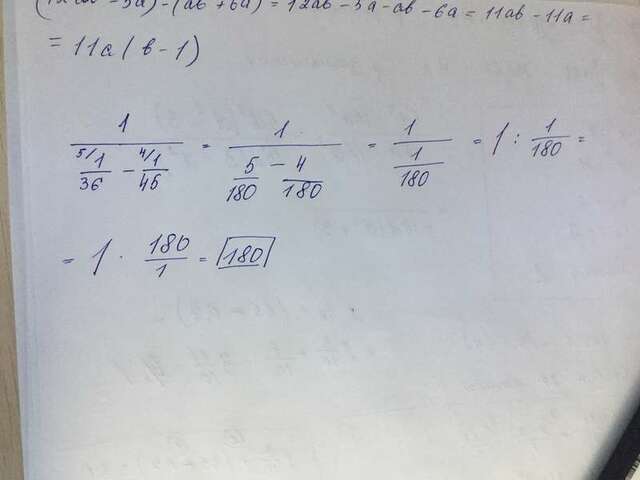 (12ab - 5a) - (ab + 6a) = 12ab - 5a - ab - 6a = 11ab - 11a =
= 11a(b - 1)
1/(⁵/1/36 - ⁴/1/45) = 1/(5/180 - 4/180) = 1/(1/180) = 1 : 1/180 =
= 1 · 180/1 = 180